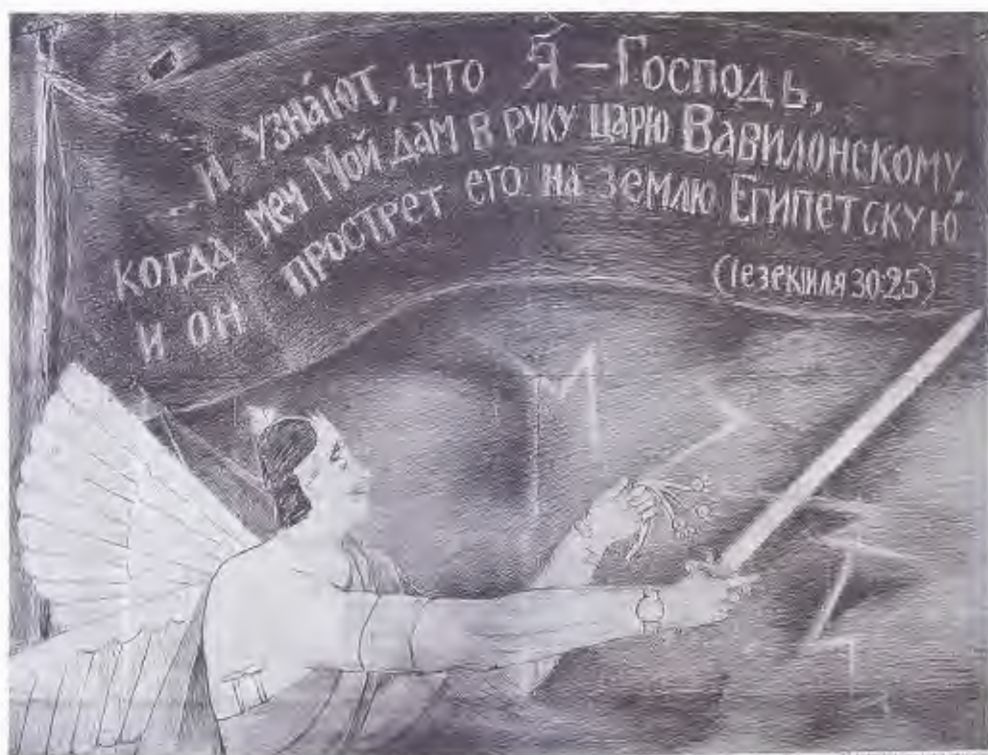 ... и узнáют, что Я – Господь,
когда меч Мой дам в руку царю Вавилонскому,
и он прострет его на землю Египетскую
(Iезекiиля 30:25)